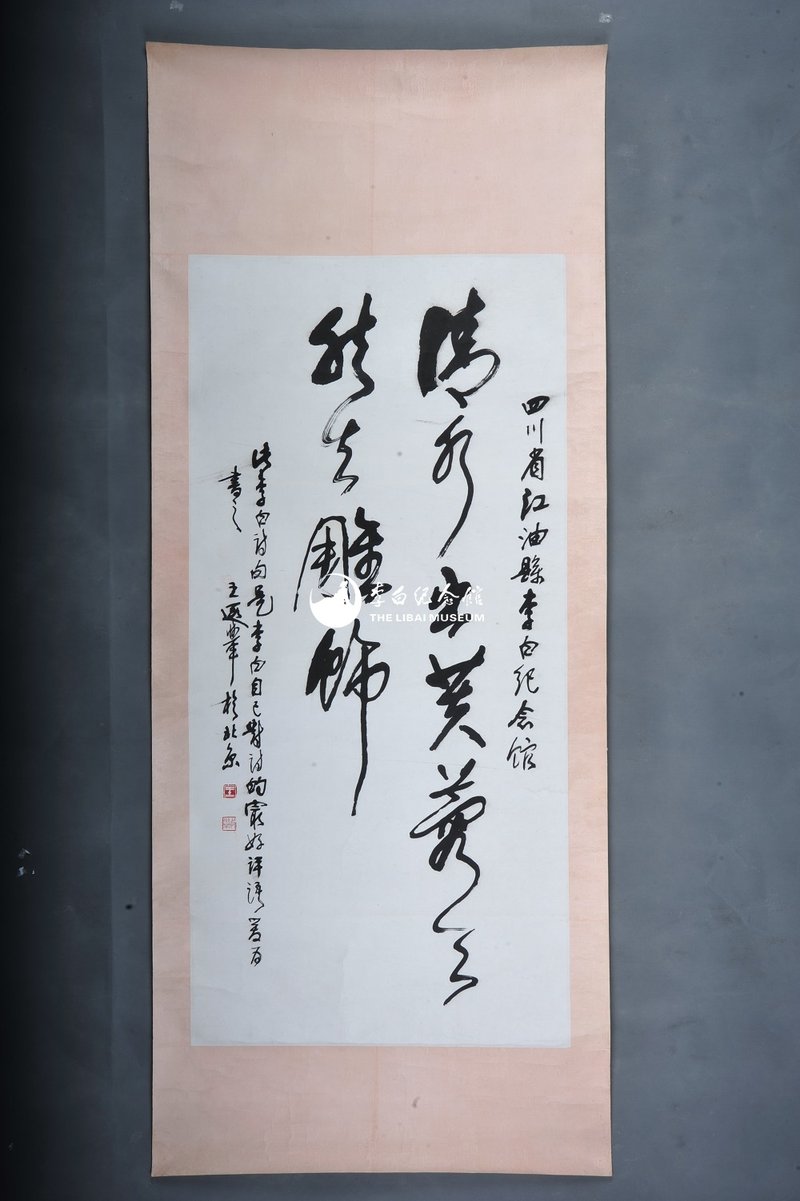 四川省江油縣李白纪念馆
清水出芙蓉天
然去雕飾
此李白詩句是李白自己對詩的最好評語爰为
書之 王遐舉於北京
李白纪念馆
THE LIBAI MUSEUM